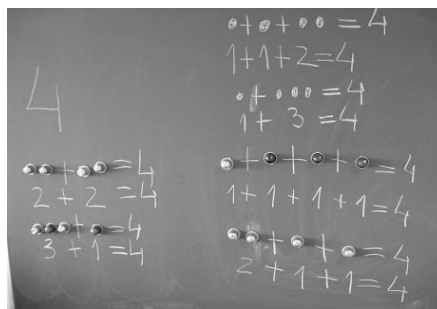 4
+ = 4
2 + 2 = 4
+ = 4
3 + 1 = 4
+ + = 4
1 + 1 + 2 = 4
+ = 4
1 + 3 = 4
+ + + = 4
1 + 1 + 1 + 1 = 4
+ + = 4
2 + 1 + 1 = 4